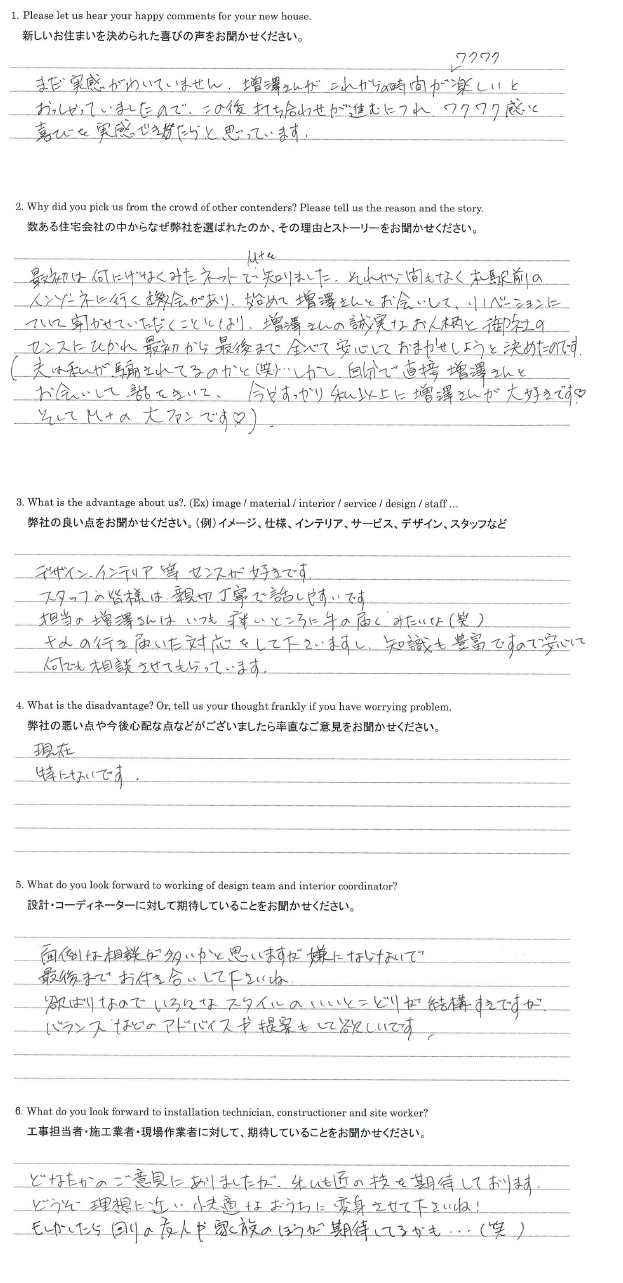 1. Please let us hear your happy comments for your new house.
新しいお住まいを決められた喜びの声をお聞かせください。
ワクワク
まだ実感がわいていません。増澤さんがこれからの時間が楽しいと
おっしゃっていましたので、この後打ち合わせが進むにつれ、ワクワク感と
喜びを実感できたらと思っています。
2. Why did you pick us from the crowd of other contenders? Please tell us the reason and the story.
数ある住宅会社の中からなぜ弊社を選ばれたのか、その理由とストーリーをお聞かせください。
M+を
最初は何にげなくみたネットで知りました。それから間もなく本駅前の
インゾーネに行く機会があり、始めて増澤さんとお会いして、リノベーションに
ついて聞かせていただくことになり、増澤さんの誠実なお人柄と御社の
センスにひかれ最初から最後まで全べて安心しておまかせしようと決めたのです。
(夫は私が騙されてるのかと(笑)…しかし、自分で直接増澤さんと
お会いして話をきいて、今やすっかり私以上に増澤さんが大好きです♡
そしてM+の大ファンです♡)。
3. What is the advantage about us?. (Ex) image / material / interior / service / design / staff ...
弊社の良い点をお聞かせください。(例)イメージ、仕様、インテリア、サービス、デザイン、スタッフなど
デザイン、インテリア等センスが好きです。
スタッフの皆様は親切丁寧で話しやすいです
担当の増澤さんはいつも痒いところに手の届くみたいな(笑)
+αの行き届いた対応をして下さいますし、知識も豊富ですので安心して
何でも相談させてもらっています。
4. What is the disadvantage? Or, tell us your thought frankly if you have worrying problem.
弊社の悪い点や今後心配な点などがございましたら率直なご意見をお聞かせください。
現在
特にないです。
5. What do you look forward to working of design team and interior coordinator?
設計・コーディネーターに対して期待していることをお聞かせください。
面倒な相談が多いかと思いますが嫌にならないで
最後までお付き合いして下さいね。
欲ばりなのでいろんなスタイルのいいとこどりが結構すきですが、
バランスなどのアドバイスや提案もして欲しいです。
6. What do you look forward to installation technician, constructioner and site worker?
工事担当者・施工業者・現場作業者に対して、期待していることをお聞かせください。
どなたかのご意見にありましたが、私も匠の技を期待しております。
どうぞ理想に近い快適なおうちに変身させて下さいね!
もしかしたら回りの友人や家族のほうが期待してるかも…(笑)